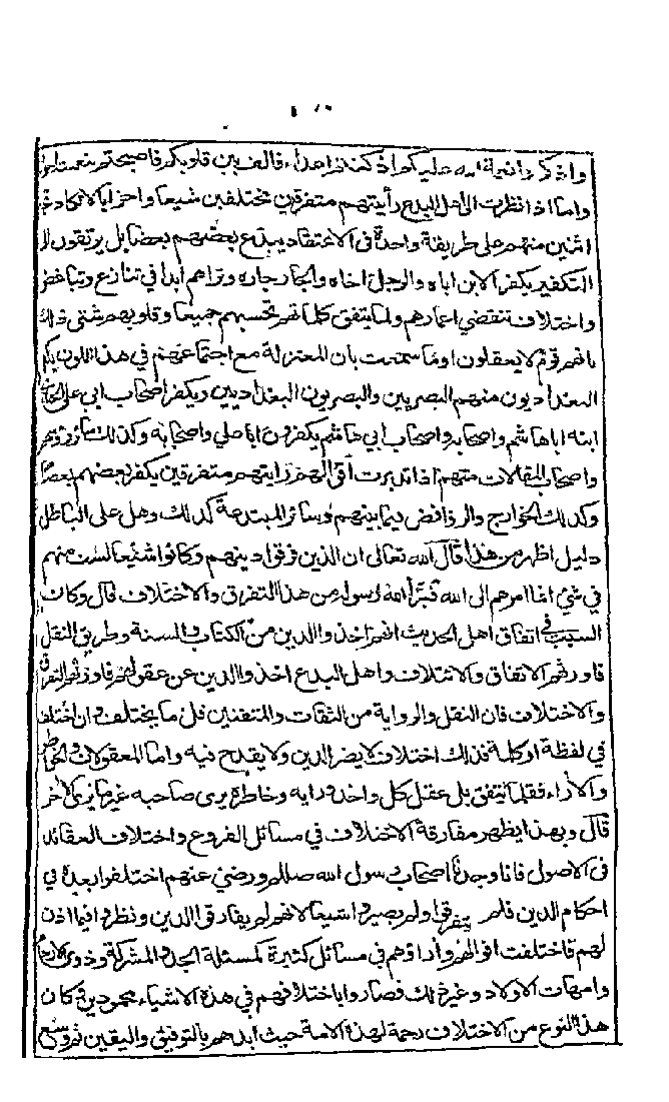 واذكروا نعمة الله عليكم اذ كنتم اعداء فالف بين قلوبكم فاصبحتم بنعمته اخوانا
واما اذا نظرت الى اهل البدع رأيتهم متفرقين مختلفين شيعا واحزابا لا تكاد تجد
اثنين منهم على طريقة واحدة في الاعتقاد يبدع بعضهم بعضا بل يرتقون الى
التكفير يكفر الابن اباه والرجل اخاه والجار جاره وتراهم ابدا في تنازع وتباغض
واختلاف تنقضي اعمارهم ولما يتفق كلماتهم تحسبهم جميعا وقلوبهم شتى ذلك
بانهم قوم لا يعقلون اوما سمعت بان المعتزلة مع اجتماعهم في هذا اللون يكفر
البغداديون منهم البصريين والبصريون البغداديين ويكفر اصحاب ابي علي الجبائي
ابنه ابا هاشم واصحابه واصحاب ابي هاشم يكفرون ابا علي واصحابه وكذلك سائر رؤسهم
واصحاب المقالات منهم اذا تدبرت اقوالهم رايتهم متفرقين يكفر بعضهم بعضا
وكذلك الخوارج والروافض فيما بينهم وسائر المبتدعة كذلك وهل على الباطل
دليل اظهر من هذا قال الله تعالى ان الذين فرقوا دينهم وكانوا شيعا لست منهم
في شيء انما امرهم الى الله فبرأ الله رسوله من هذا التفرق والاختلاف قال وكان
السبب في اتفاق اهل الحديث انهم اخذوا الدين من الكتاب والسنة وطريق النقل
فاورثهم الاتفاق والائتلاف واهل البدع اخذوا الدين عن عقولهم فاورثهم التفرق
والاختلاف فان النقل والرواية من الثقات والمتقنين قل ما يختلف وان اختلف
في لفظة او كلمة فذلك اختلاف لا يضر الدين ولا يقدح فيه واما المعقولات والخواطر
والآراء فقلما تتفق بل عقل كل واحد ورايه وخاطره يرى صاحبه غير ما يرى الآخر
قال وبهذا يظهر مفارقة الاختلاف في مسائل الفروع واختلاف العقائد
في الاصول فانا وجدنا اصحاب رسول الله صللم ورضي عنهم اختلفوا بعده في
احكام الدين فلم يتفرقوا ولم يصيروا شيعا لانهم لم يفارقوا الدين ونظروا فيما اذن
لهم فاختلفت اقوالهم وآراؤهم في مسائل كثيرة كمسئلة الجد والمشركة وذوي الارحام
وامهات الاولاد وغير ذلك فصاروا باختلافهم في هذه الاشياء محمودين وكان
هذا النوع من الاختلاف رحمة لهذه الامة حيث ايدهم بالتوفيق واليقين ثم وسع